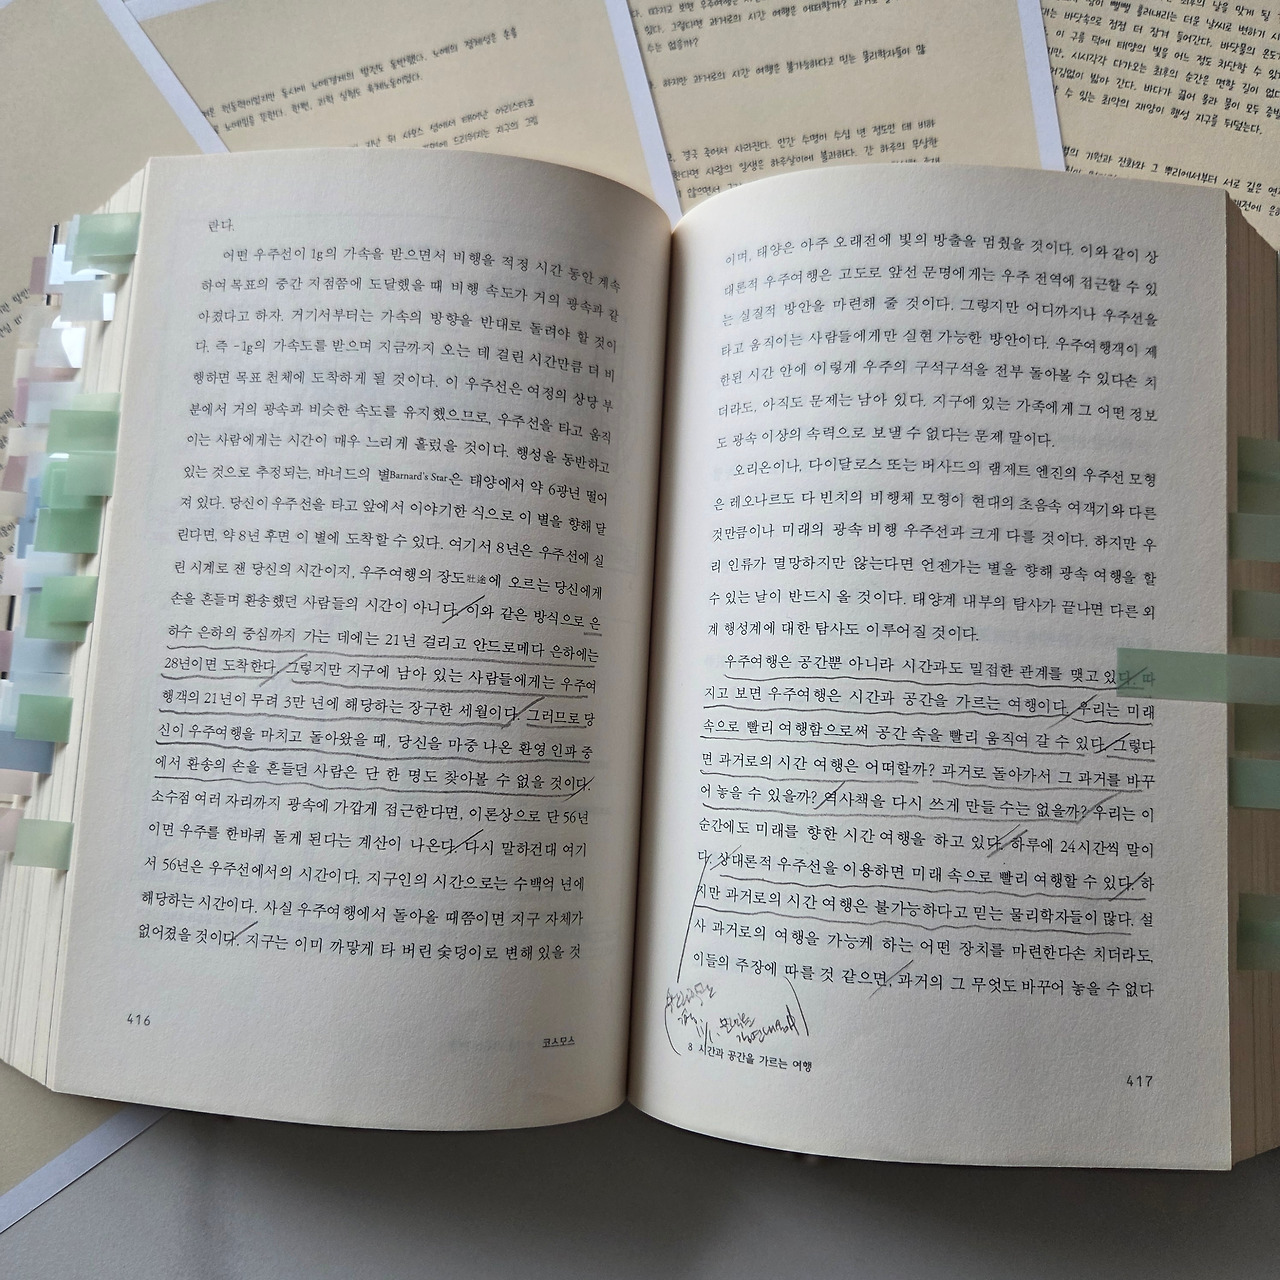 란다.
어떤 우주선이 1g의 가속을 받으면서 비행을 적정 시간 동안 계속
하여 목표의 중간 지점쯤에 도달했을 때 비행 속도가 거의 광속과 같
아졌다고 하자. 거기서부터는 가속의 방향을 반대로 돌려야 할 것이
다. 즉 -1g의 가속도를 받으며 지금까지 오는 데 걸린 시간만큼 더 비
행하면 목표 천체에 도착하게 될 것이다. 이 우주선은 여정의 상당 부
분에서 거의 광속과 비슷한 속도를 유지했으므로, 우주선을 타고 움직
이는 사람에게는 시간이 매우 느리게 흘렀을 것이다. 행성을 동반하고
있는 것으로 추정되는, 바너드의 별Barnard's Star은 태양에서 약 6광년 떨어
져 있다. 당신이 우주선을 타고 앞에서 이야기한 식으로 이 별을 향해 달
린다면, 약 8년 후면 이 별에 도착할 수 있다. 여기서 8년은 우주선에 실
린 시계로 잰 당신의 시간이지, 우주여행의 장도壯途에 오르는 당신에게
손을 흔들며 환송했던 사람들의 시간이 아니다. 이와 같은 방식으로 은
하수 은하의 중심까지 가는 데에는 21년 걸리고 안드로메다 은하에는
28년이면 도착한다. 그렇지만 지구에 남아 있는 사람들에게는 우주여
행객의 21년이 무려 3만 년에 해당하는 장구한 세월이다. 그러므로 당
신이 우주여행을 마치고 돌아왔을 때, 당신을 마중 나온 환영 인파 중
에서 환송의 손을 흔들던 사람은 단 한 명도 찾아볼 수 없을 것이다.
소수점 여러 자리까지 광속에 가깝게 접근한다면, 이론상으로 단 56년
이면 우주를 한바퀴 돌게 된다는 계산이 나온다. 다시 말하건대 여기
서 56년은 우주선에서의 시간이다. 지구인의 시간으로는 수백억 년에
해당하는 시간이다. 사실 우주여행에서 돌아올 때쯤이면 지구 자체가
없어졌을 것이다. 지구는 이미 까맣게 타 버린 숯덩이로 변해 있을 것
416
코스모스
이며, 태양은 아주 오래전에 빛의 방출을 멈췄을 것이다. 이와 같이 상
대론적 우주여행은 고도로 앞선 문명에게는 우주 전역에 접근할 수 있
는 실질적 방안을 마련해 줄 것이다. 그렇지만 어디까지나 우주선을
타고 움직이는 사람들에게만 실현 가능한 방안이다. 우주여행객이 제
한된 시간 안에 이렇게 우주의 구석구석을 전부 돌아볼 수 있다손 치
더라도, 아직도 문제는 남아 있다. 지구에 있는 가족에게 그 어떤 정보
도 광속 이상의 속력으로 보낼 수 없다는 문제 말이다.
오리온이나, 다이달로스 또는 버사드의 램제트 엔진의 우주선 모형
은 레오나르도 다 빈치의 비행체 모형이 현대의 초음속 여객기와 다른
것만큼이나 미래의 광속 비행 우주선과 크게 다를 것이다. 하지만 우
리 인류가 멸망하지만 않는다면 언젠가는 별을 향해 광속 여행을 할
수 있는 날이 반드시 올 것이다. 태양계 내부의 탐사가 끝나면 다른 외
계 행성계에 대한 탐사도 이루어질 것이다.
우주여행은 공간뿐 아니라 시간과도 밀접한 관계를 맺고 있다. 따
지고 보면 우주여행은 시간과 공간을 가르는 여행이다. 우리는 미래
속으로 빨리 여행함으로써 공간 속을 빨리 움직여 갈 수 있다. 그렇다
면 과거로의 시간 여행은 어떠할까? 과거로 돌아가서 그 과거를 바꾸
어 놓을 수 있을까? 역사책을 다시 쓰게 만들 수는 없을까? 우리는 이
순간에도 미래를 향한 시간 여행을 하고 있다. 하루에 24시간씩 말이
다. 상대론적 우주선을 이용하면 미래 속으로 빨리 여행할 수 있다. 하
지만 과거로의 시간 여행은 불가능하다고 믿는 물리학자들이 많다. 설
사 과거로의 여행을 가능케 하는 어떤 장치를 마련한다손 치더라도,
이들의 주장에 따를 것 같으면, 과거의 그 무엇도 바꾸어 놓을 수 없다
8 시간과 공간을 가르는 여행
417